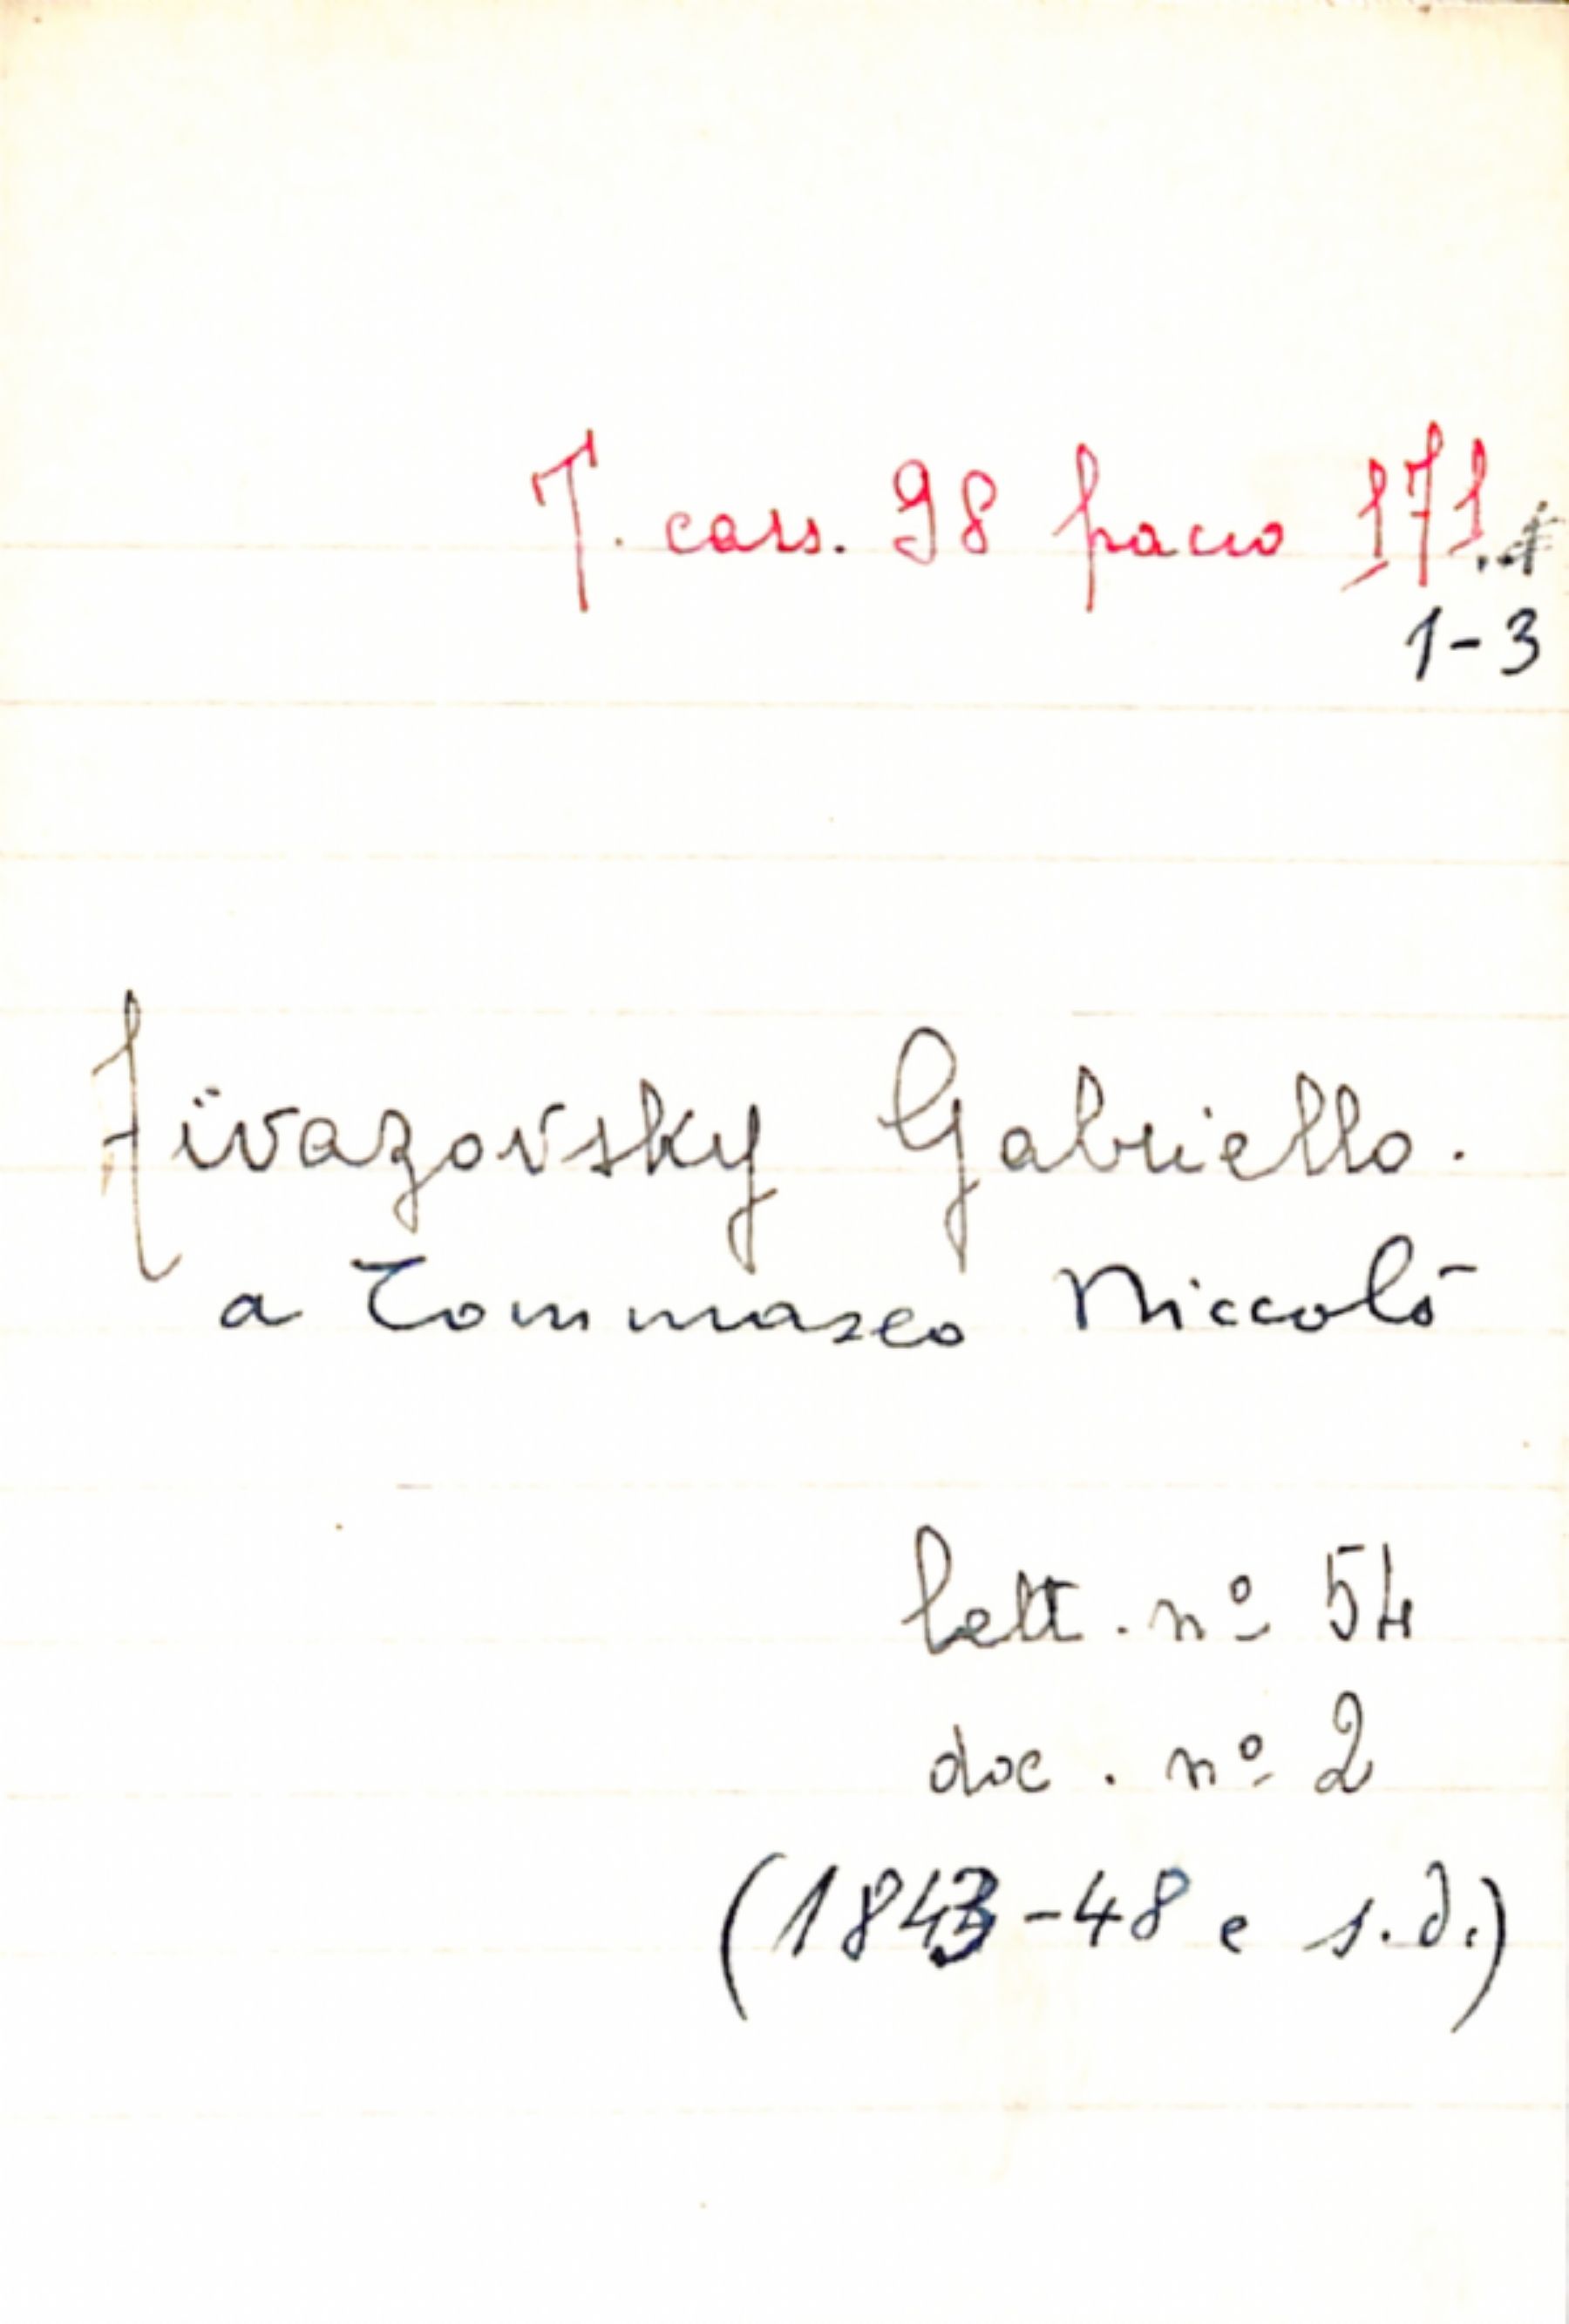 T. cass. 98 pacco 171.
1-3
Aïvazovsky Gabriello.
a Tommaseo Niccolò
lett. nº 54
doc. nº 2
(1843-48 e s.d.)